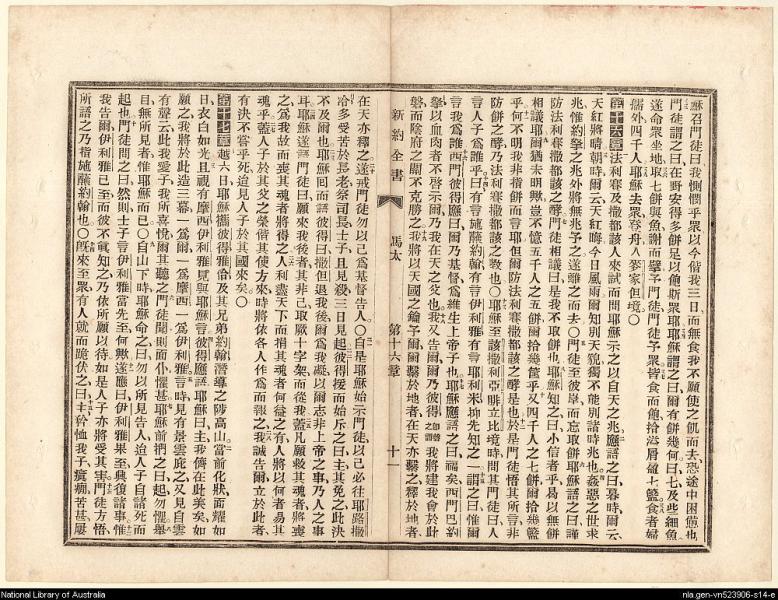 穌召門徒曰我惻憫乎眾以今偕我三日而無食我不願使之飢而去恐途中困憊也
門徒謂之曰在野安得多餅足以飽斯眾耶穌謂之曰爾有餅幾何曰七及些細魚
遂命眾坐地取七餅與魚謝而擘予門徒門徒予眾皆食而飽拾盈屑七籃食者婦
孺外四千人耶穌去眾登舟入麥家但境○
第十六章法利賽及撒都該人來試而問耶穌示之以自天之兆應語之曰暮時爾云
天紅將晴朝時爾云天紅晦今日風雨爾知別天貌獨不能別諸時兆也姦惡之世求
兆惟約拿之兆外將無兆予之遂離之而去○門徒至彼岸而忘取餅耶穌語之曰謹
防法利賽撒都該之酵門徒相議曰是我不取餅也耶穌知之曰小信者乎曷以無餅
相議耶爾猶未明歟豈不憶五千人之五餅爾拾幾筐乎又四千人之七餅爾拾幾籃
乎何不明我非指餅而言耶但爾防法利賽撒都該之酵是也於是門徒悟其所言非
防餅之酵乃法利賽撒都該之教也○耶穌至該撒利亞腓立比境時問其門徒曰人
言我人子為誰乎曰有言施蘸約翰有言伊利亞有言耶利米抑先知之一謂之曰惟爾
言我為誰西門彼得應曰爾乃基督為維生上帝子也耶穌應語之曰福矣西門巴約
拿以血肉者不啓示爾乃我在天之父也我又告爾爾乃彼得即磐之謂我將建我會於此
磐而陰府之關不克勝之我將以天國之鑰予爾爾繫於地者在天亦繫之釋於地者
新約全書 馬太 第十六章 十一
在天亦釋之遂戒門徒勿以己為基督告人○自是耶穌始示門徒以己必往耶路撒
冷多受苦於長老祭司長士子且見殺三日見起彼得援而始斥之曰主其免之此決
不及爾也耶穌回而語彼得曰撒但退我後爾為我礙以爾志非上帝之事乃人之事
耳耶穌遂謂門徒曰人願來我後者其克己取厥十字架而從我蓋凡願救其魂者將喪
之為我故而喪其魂者將得之人利盡天下而損其魂者何益之有人將以何者易其
魂乎蓋人子於其父之榮偕其使方來時將依各人作為而報之我誠告爾立於此者
有決不嘗乎死迨見人子於其國來矣○
第十七章越六日耶穌攜彼得雅各及其兄弟約翰潛導之陟高山當前化狀面耀如
日衣白如光且視有摩西伊利亞見與耶穌言彼得應語耶穌曰主我儕在此美矣如
願之我將於此造三幕一為爾一為摩西一為伊利亞言時見有景雲庇之又見自雲
有聲云此我愛子我所喜悅爾其聽之門徒聞則面仆懼甚耶穌前捫之曰起勿懼舉
目無所見者惟耶穌而已○自山下時耶穌命之曰勿以所見告人迨人子自諸死而
起也門徒問之曰然則士子言伊利亞當先至何歟遂應曰伊利亞果至興復諸事惟
我告爾伊利亞已至而彼不識知之乃依所願以待如是人子亦將受其害門徒方悟
所語之乃指施蘸約翰也○既來至眾有人就而跪伏之曰主矜恤我子癲癇苦甚屢
National Library of Australia
nla.gen-vn523906-s14-e